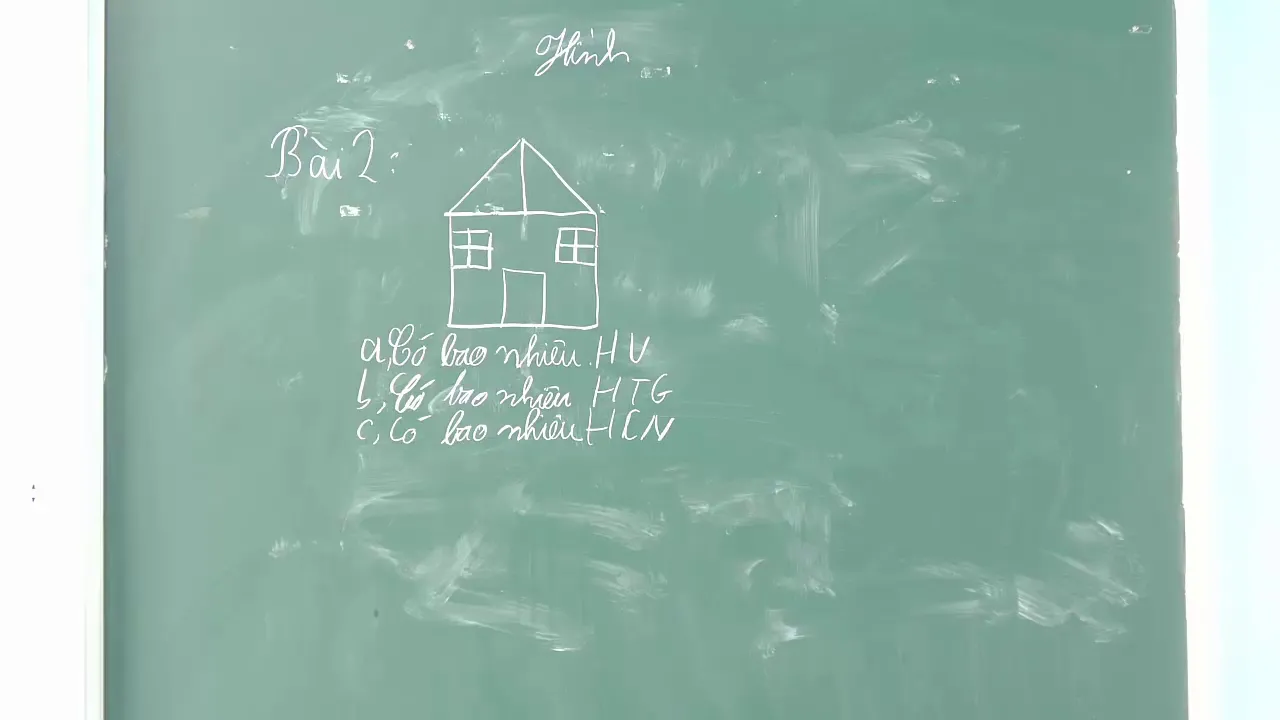 Hình
Bài 2:
a, Có bao nhiêu HV
b, Có bao nhiêu HTG
c, Có bao nhiêu HCN